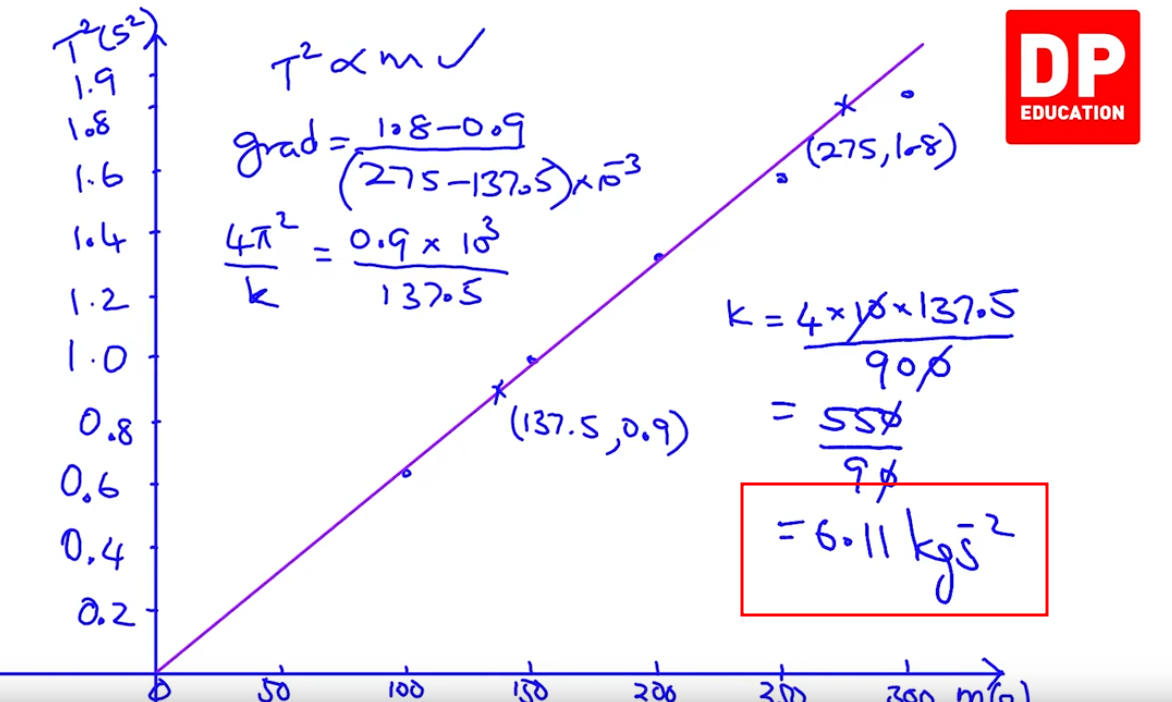 T²(s²)
1.9
1.8
1.6
1.4
1.2
1.0
0.8
0.6
0.4
0.2
T² ∝ m ✓
grad = (1.8-0.9)/((275-137.5)×10⁻³)
4π²/k = (0.9 × 10³)/137.5
(275, 1.8)
(137.5, 0.9)
k = (4×10×137.5)/900
= 550/90
= 6.11 kgs⁻²
0 50 100 150 200 250 300 m(g)
DP
EDUCATION